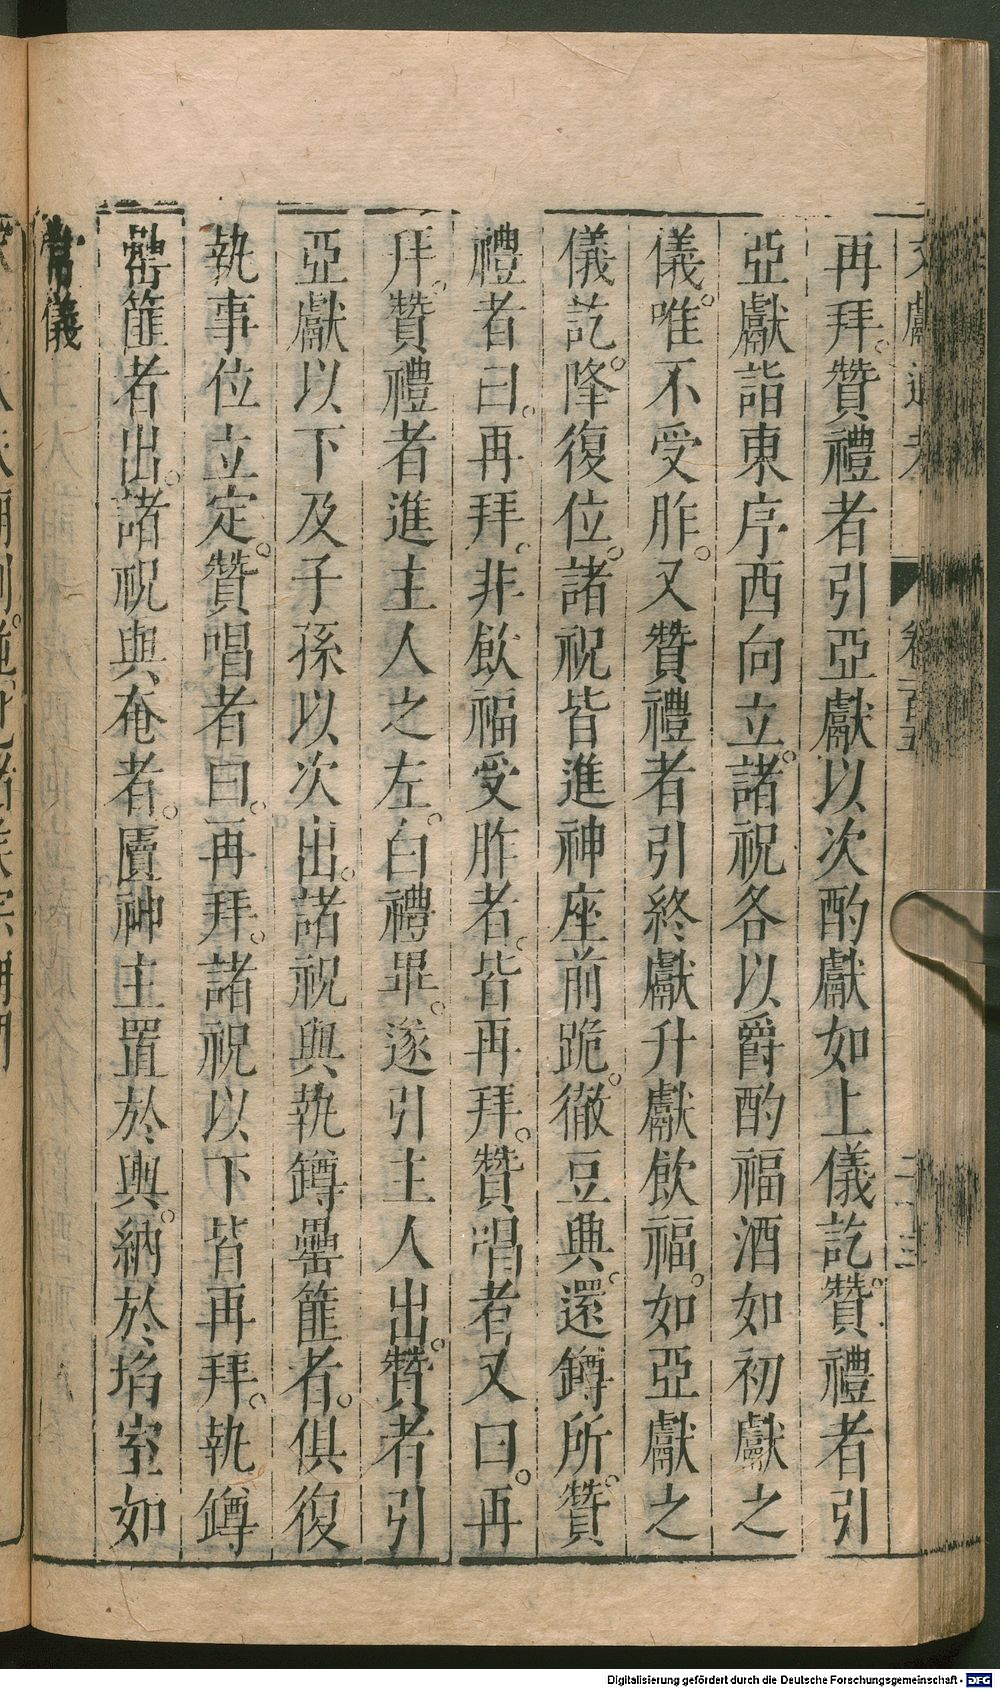 文獻通考 卷一百五 二十三
再拜。贊禮者引亞獻以次酌獻如上儀訖。贊禮者引
亞獻詣東序西向立。諸祝各以爵酌福酒如初獻之
儀。唯不受胙。又贊禮者引終獻升獻飲福。如亞獻之
儀訖。降復位。諸祝皆進神座前跪。徹豆興。還罇所。贊
禮者曰。再拜。非飲福受胙者。皆再拜。贊唱者又曰。再
拜。贊禮者進主人之左。白禮畢。遂引主人出。贊者引
亞獻以下及子孫以次出。諸祝與執罇罍篚者。俱復
執事位立定。贊唱者曰。再拜。諸祝以下皆再拜。執罇
罍篚者出。諸祝與奄者。匵神主置於輿。納於埳室如
常儀
Digitalisierung gefördert durch die Deutsche Forschungsgemeinschaft - DFG